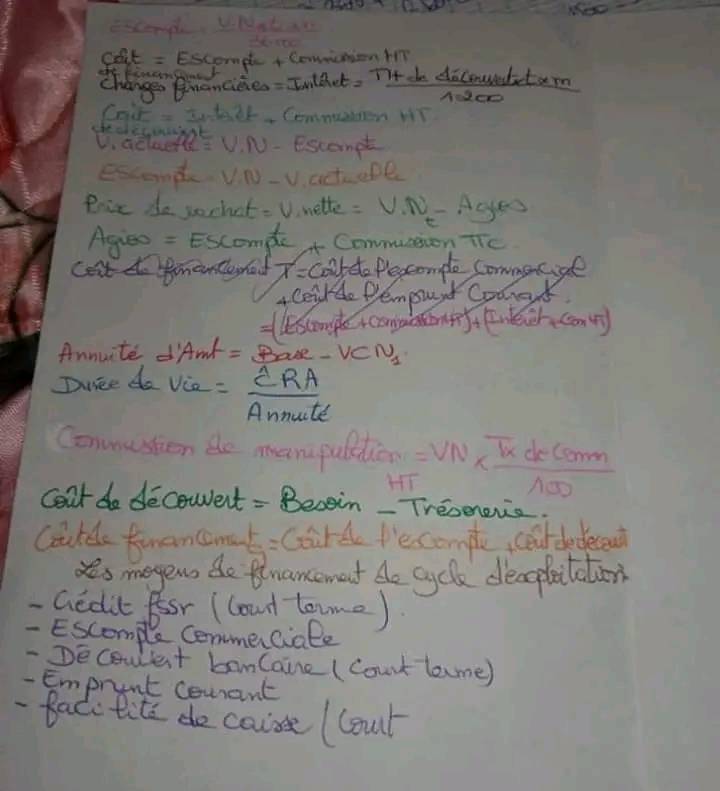 Escompte = V.N x t x n
36000
Coût = Escompte + Commission HT
de financement
Charges financières = Intérêt = Mt de découvert x t x m
1200
Coût = Intérêt + Commission HT
de découvert
V. actuelle = V.N - Escompte
Escompte = V.N - V. actuelle
Prix de rachat = V. nette = V.N - Agios
Agios = Escompte + Commission TTC
Coût de financement T = Coût de l'escompte Commercial
+ Coût de l'emprunt Courant
= (Escompte + Commission HT) + (Intérêt + Com HT)
Annuité d'Amt = Base - VCN1
Durée de Vie = ERA
Annuité
Commission de manipulation HT = VN x Tx de Comm
100
Coût de découvert = Besoin - Trésorerie.
Coût de financement = Coût de l'escompte + Coût de découvert
Les moyens de financement de cycle d'exploitation
- Crédit fssr (Court terme).
- Escompte Commerciale
- Découvert bancaire (Court terme)
- Emprunt courant
- facilité de caisse (Court